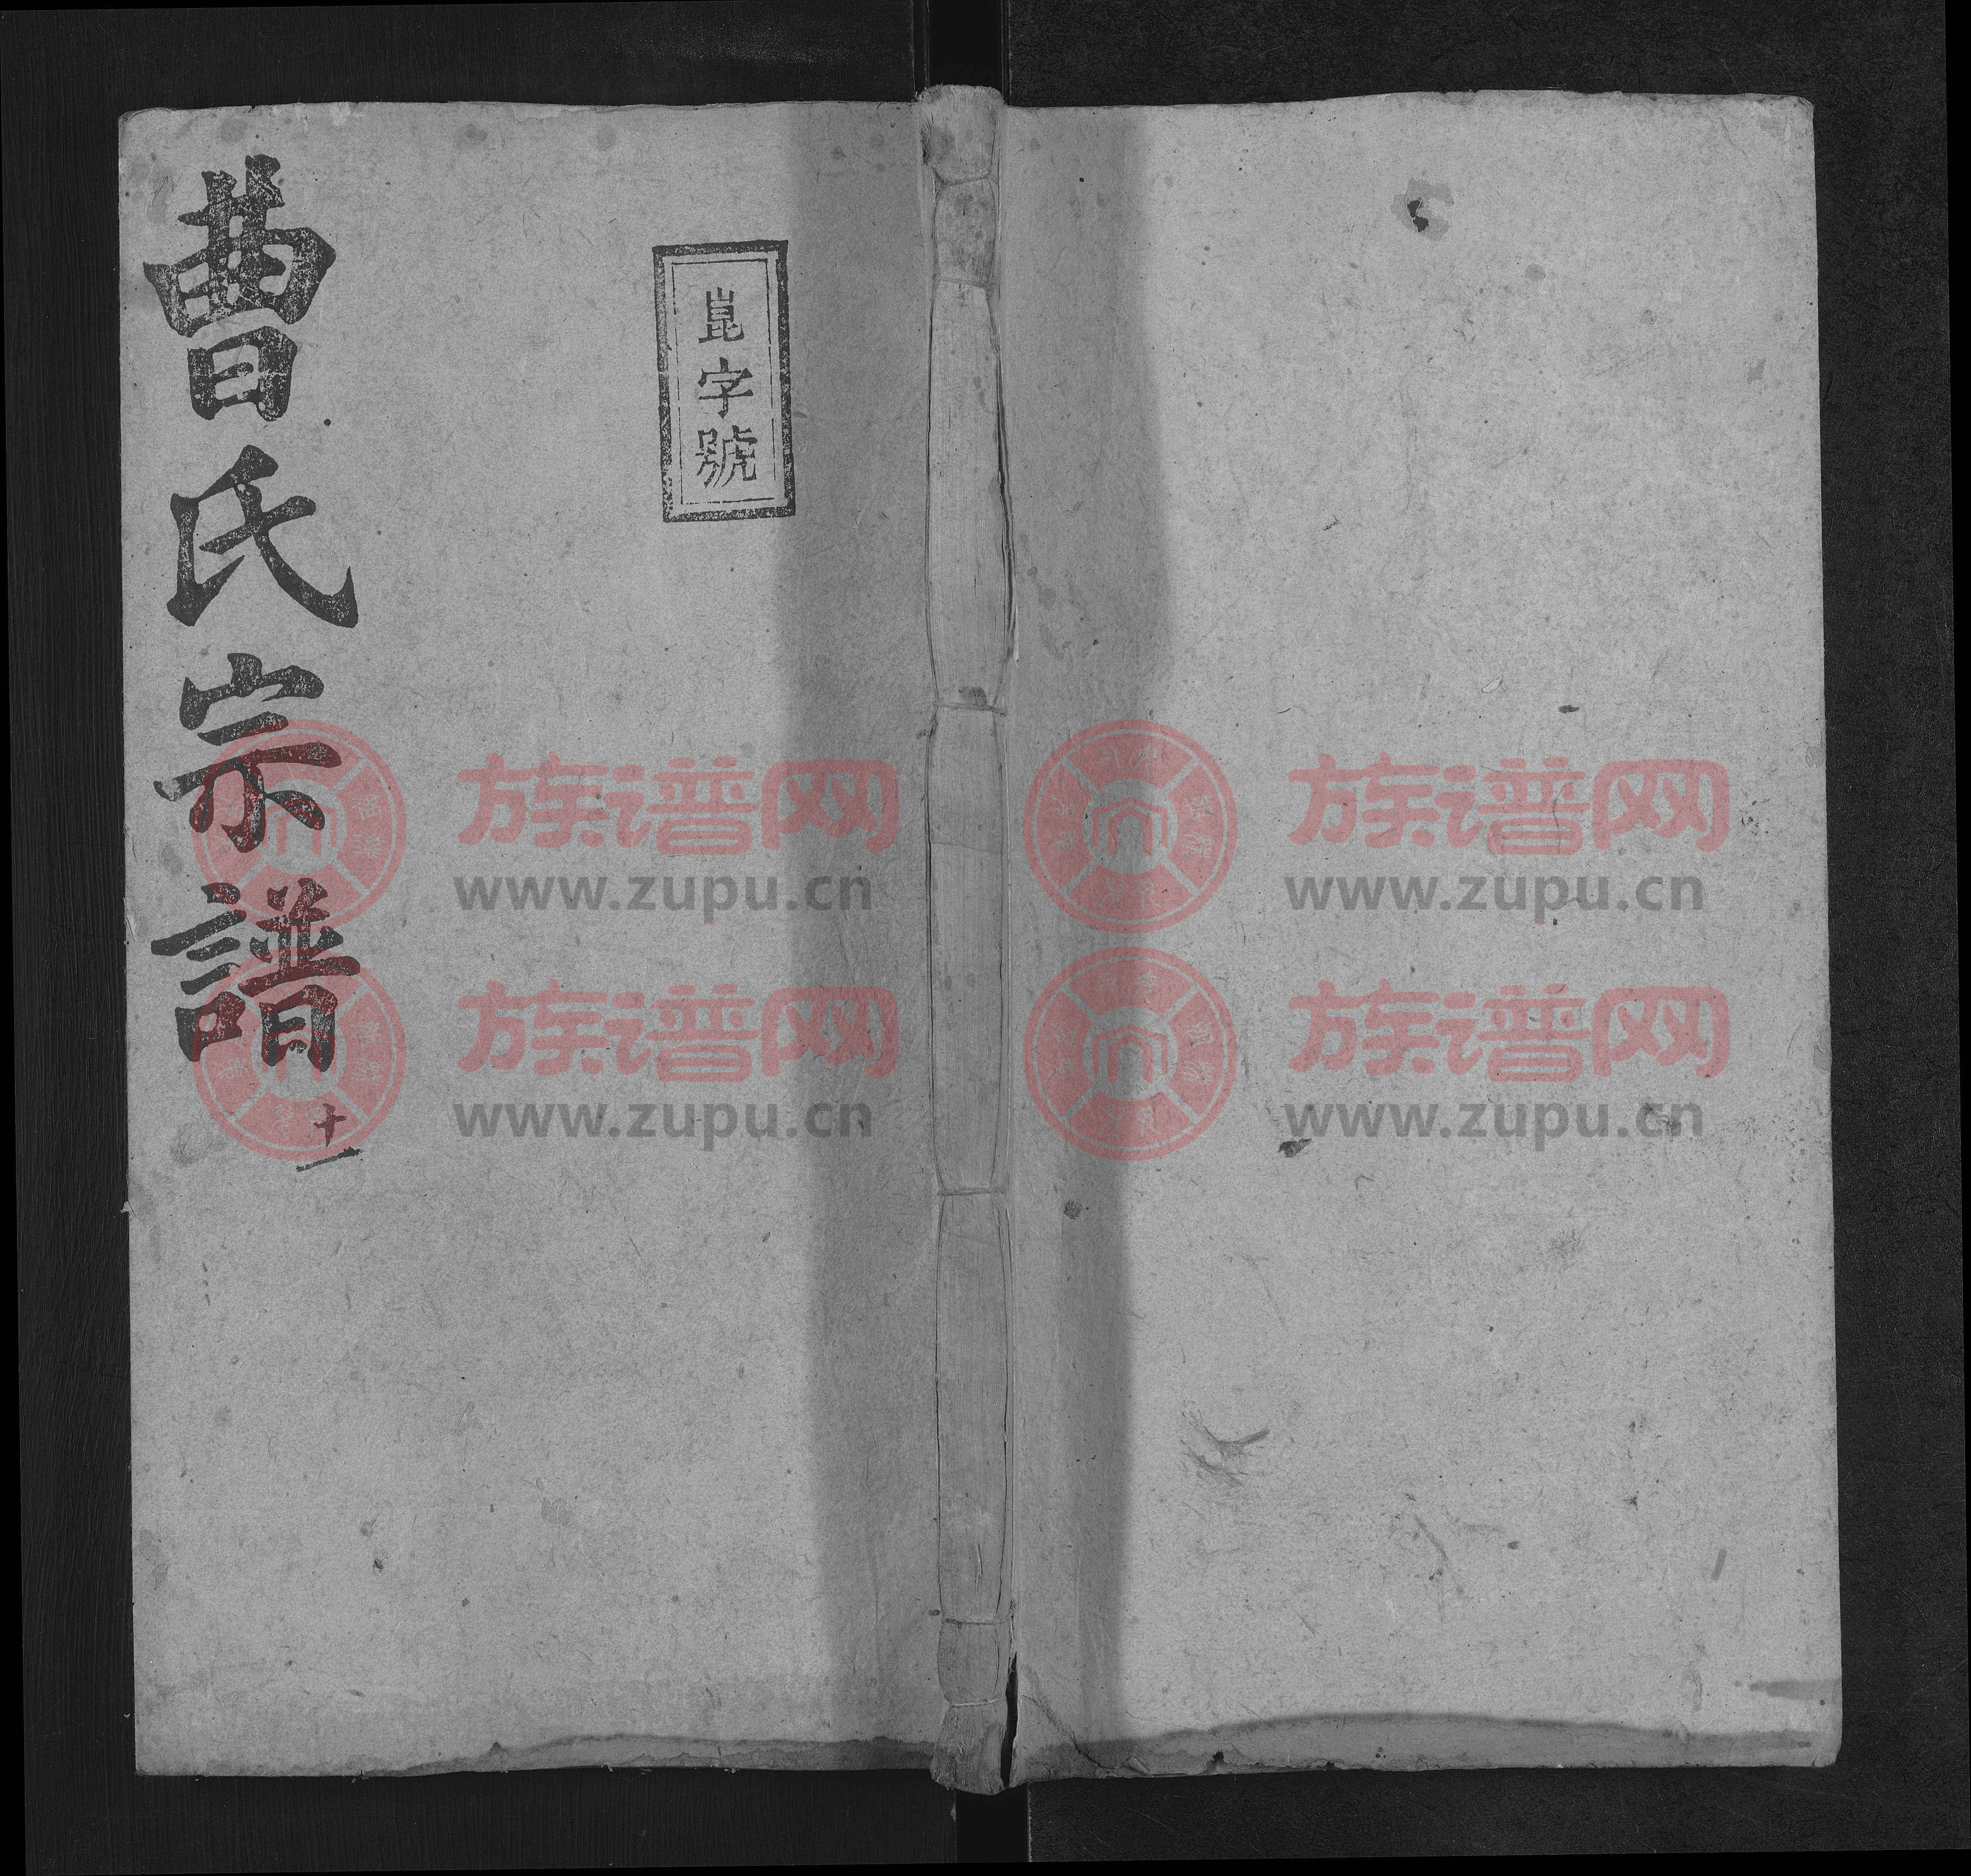 曹氏宗譜
十一
崑字號
族谱网
www.zupu.cn
族谱网
www.zupu.cn
族谱网
www.zupu.cn
族谱网
www.zupu.cn